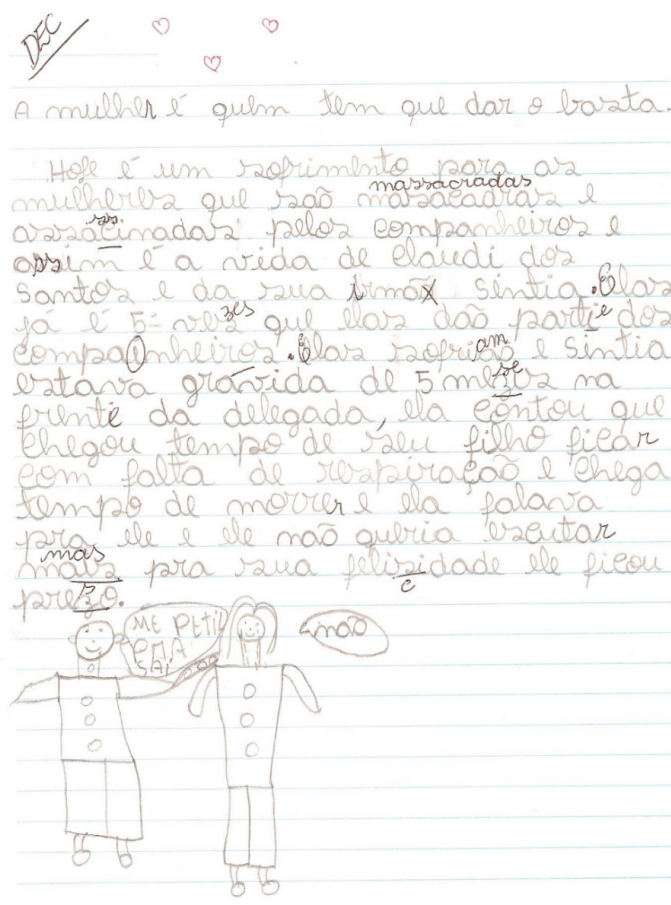 DEC
A mulher é quem tem que dar o basta.
Hoje é um sofrimento para as
massacradas
mulheres que são masacadras e
ss
assacinadas pelos companheiros e
assim é a vida de claudi dos
santos e da sua irmãx sintia. Elas
zes
já é 5ª ves que elas dão parte dos
companheiros. Elas sofriam e sintia
am
se
estava grávida de 5 meses na
frente da delegada, ela contou que
chegou tempo de seu filho ficar
com falta de respiração e chega
tempo de morrer e ela falava
pra ele e ele não queria escutar
mas
mais pra sua felisidade ele ficou
c
prezo.
s
ME PETIU
PRA
SAI
não